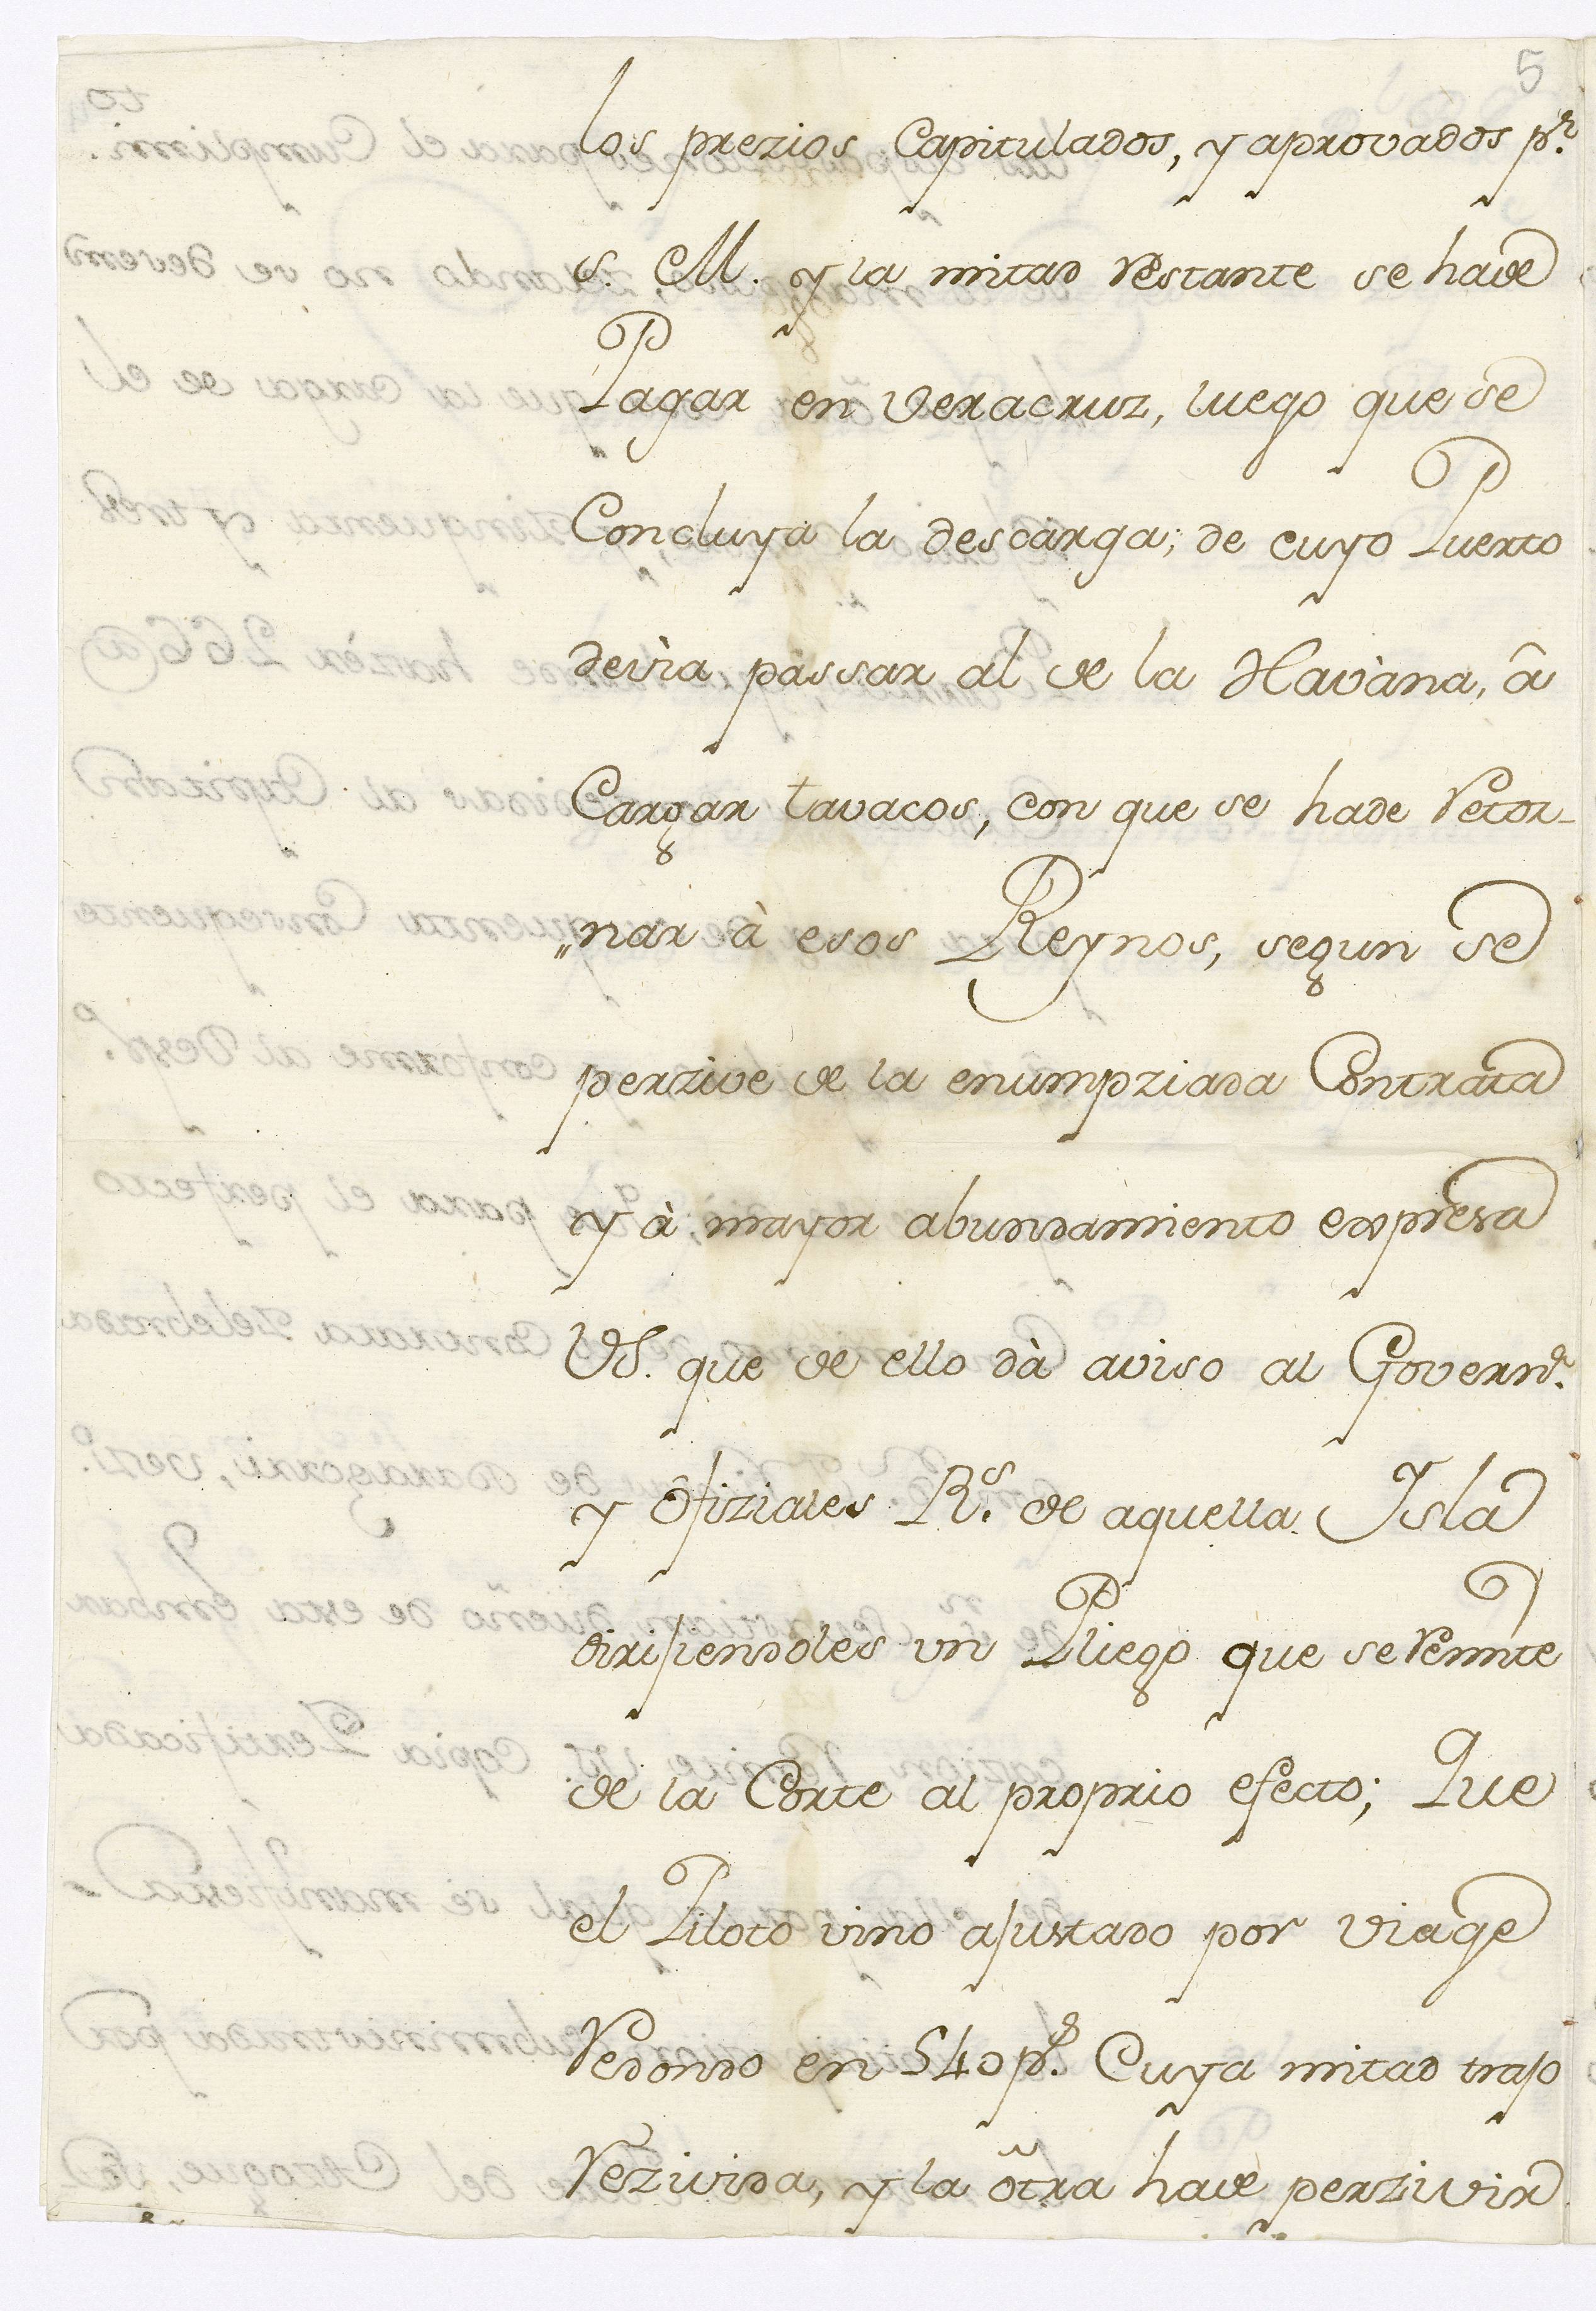 5
los prezios Capitulados, y aprovados p.r
S. M. y la mitad restante se hade
Pagar en Veracruz, luego que se
Concluya la descarga; de cuyo Puerto
devìa passar al de la Havàna, â
Cargar tavacos, con que se hade retor-
"nar à esos Reynos, segun se
perzive de la enumpziada Contrata
y à mayor abundamiento expresa
VS. que de ello dà aviso al Governr.
y Ofiziales Rs. de aquella Isla
dirijiendoles un Pliego que se remite
de la Corte al proprio efecto; Que
el Piloto vino ajustado por viage
redondo en 540 ps. Cuya mitad trajo
rezivida, y la otra hade perzivir